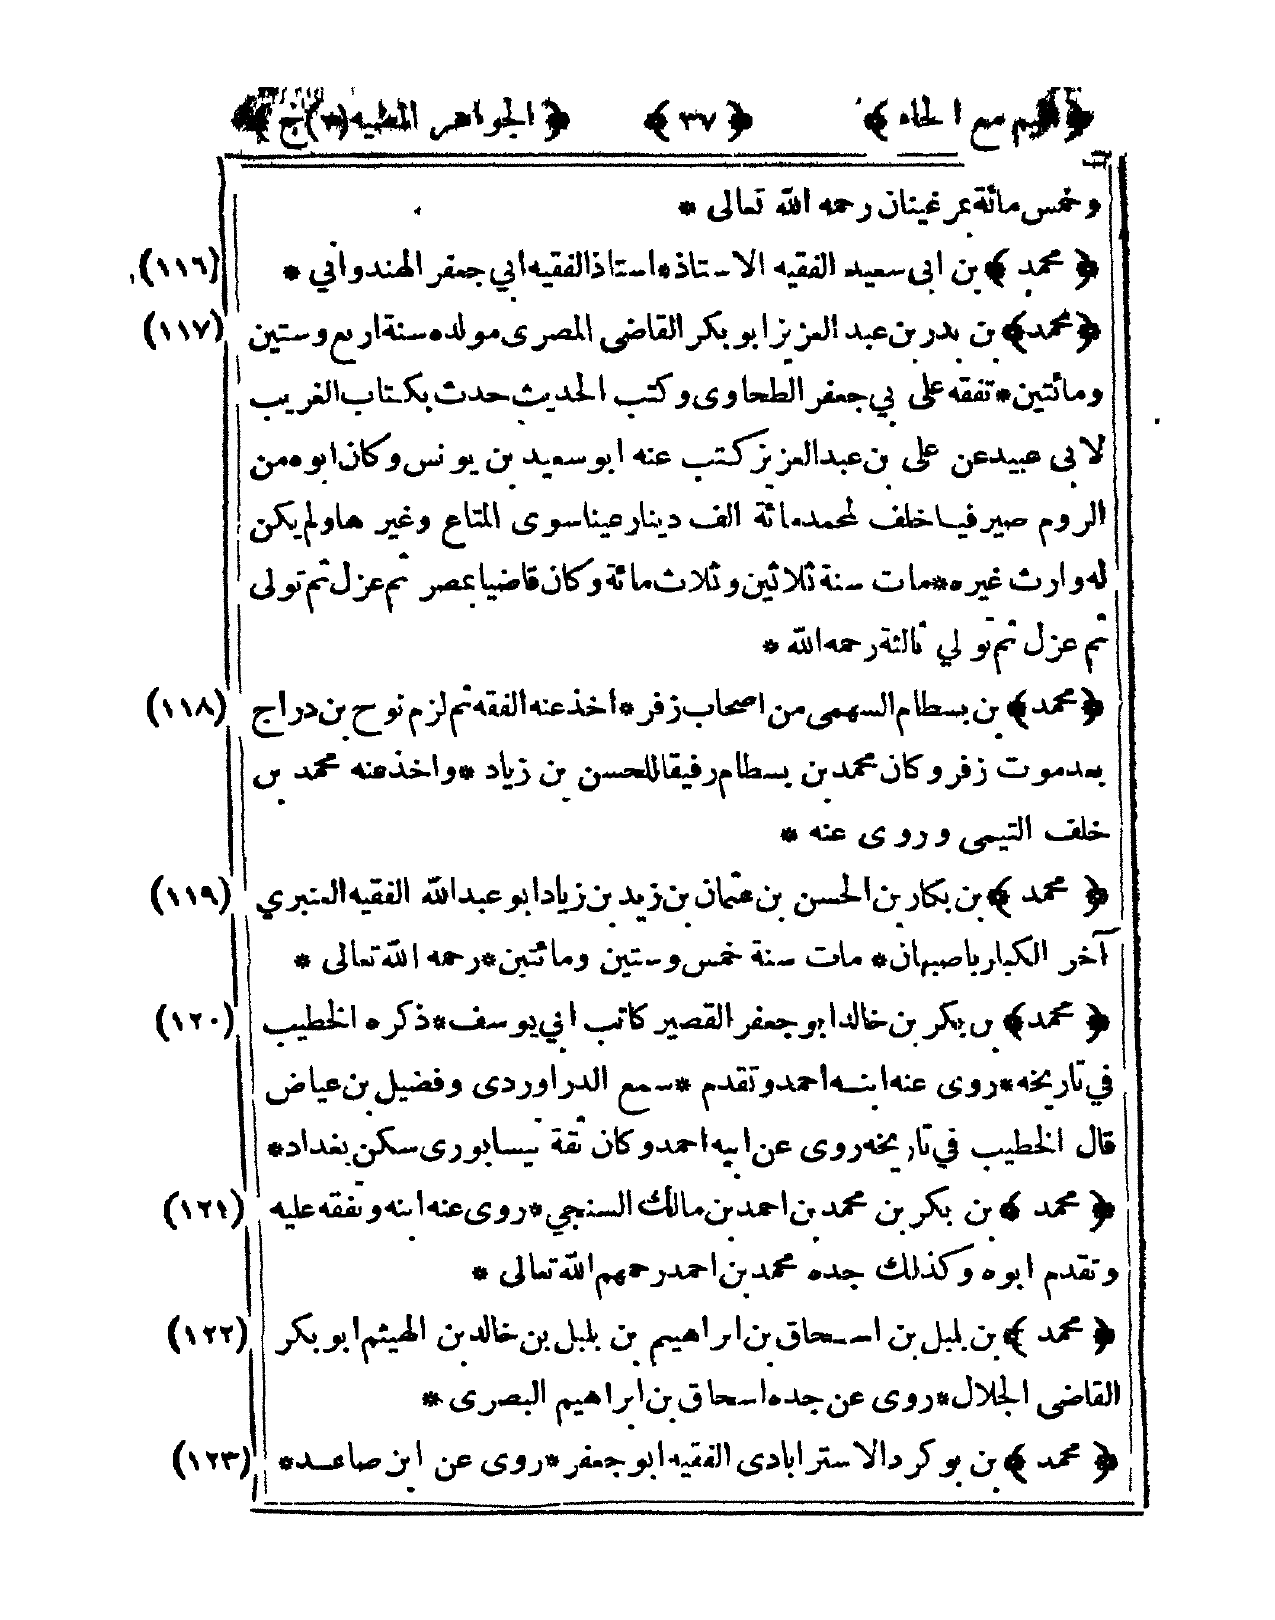 ﴿الميم مع الحاء﴾ ﴿٣٧﴾ ﴿الجواهر المضيه(٢)ج﴾
وخمس مائة بمرغينان رحمه الله تعالى *
﴿ محمد ﴾ بن ابى سعيد الفقيه الاستاذ*استاذ الفقيه ابي جعفر الهندواني * (١١٦)
﴿محمد﴾ بن بدر بن عبد العزيز ابو بكر القاضى المصرى مولده سنة اربع وستين (١١٧)
ومائتين*تفقه على بي جعفر الطحاوى وكتب الحديث حدث بكتاب الغريب
لابى عبيد عن على بن عبد العزيز كتب عنه ابو سعيد بن يونس وكان ابوه من
الروم صيرفيا خلف لمحمد مائة الف دينار عينا سوى المتاع وغيرها ولم يكن
له وارث غيره*مات سنة ثلاثين وثلاث مائة وكان قاضيا بمصر ثم عزل ثم تولى
ثم عزل ثم تولي ثالثة رحمه الله *
﴿محمد﴾ بن بسطام السهمى من اصحاب زفر*اخذ عنه الفقه ثم لزم نوح بن دراج (١١٨)
بعد موت زفر وكان محمد بن بسطام رفيقا للحسن بن زياد *واخذ عنه محمد بن
خلف التيمى وروى عنه *
﴿ محمد ﴾ بن بكار بن الحسن بن عثمان بن زيد بن زياد ابو عبد الله الفقيه العنبري (١١٩)
آخر الكبار باصبهان* مات سنة خمس وستين ومائتين*رحمه الله تعالى *
﴿ محمد﴾ بن بكر بن خالد ابو جعفر القصير كاتب ابي يوسف*ذكره الخطيب (١٢٠)
في تاريخه*روى عنه ابنه احمد وتقدم *سمع الدراوردى وفضيل بن عياض
قال الخطيب في تاريخه روى عن ابيه احمد وكان ثقة نيسابورى سكن بغداد*
﴿ محمد ﴾ بن بكر بن محمد بن احمد بن مالك السنجي*روى عنه ابنه وتفقه عليه (١٢١)
وتقدم ابوه وكذلك جده محمد بن احمد رحمهم الله تعالى *
﴿ محمد ﴾ بن بلبل بن اسحاق بن ابراهيم بن بلبل بن خالد بن الهيثم ابو بكر (١٢٢)
القاضى الجلال*روى عن جده اسحاق بن ابراهيم البصرى *
﴿ محمد ﴾ بن بوكرد الاسترابادى الفقيه ابو جعفر*روى عن ابن صاعد* (١٢٣)